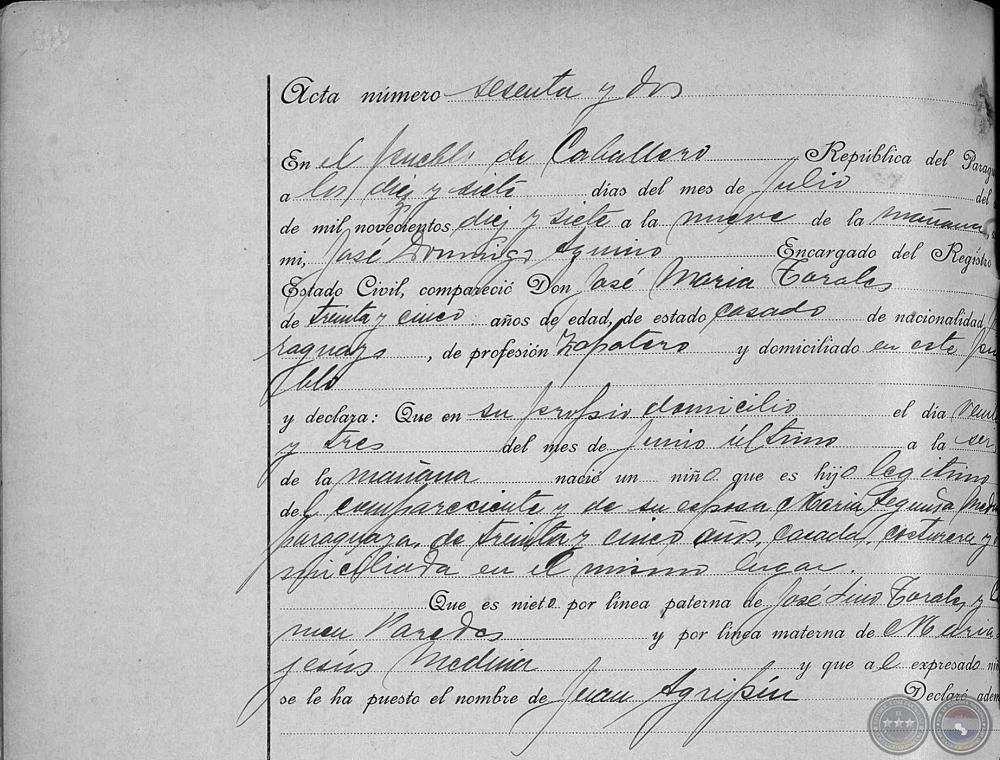 Acta número sesenta y dos
En el pueblo de Caballero República del Parag
a los diez y siete días del mes de Julio del
de mil novecientos diez y siete a la nueve de la mañana,
mi, José Domingo Aquino Encargado del Registro
Estado Civil, compareció Don José Maria Torales
de treinta y cinco años de edad, de estado casado de nacionalidad
raguayo, de profesión Zapatero y domiciliado en este pue
blo
y declara: Que en su propio domicilio el día veint
y tres del mes de Junio último a la
de la mañana nació un niño que es hijo legitimo
del compareciente y de su esposa Maria Segunda Medi
paraguaya, de treinta y cinco años, casada, costurera y
miciliada en el mismo lugar.
Que es nieto por línea paterna de José Lino Torales y
men Paredes y por línea materna de Maria
jesús Medina y que al expresado niñ
se le ha puesto el nombre de Juan Agripín Declaró adem